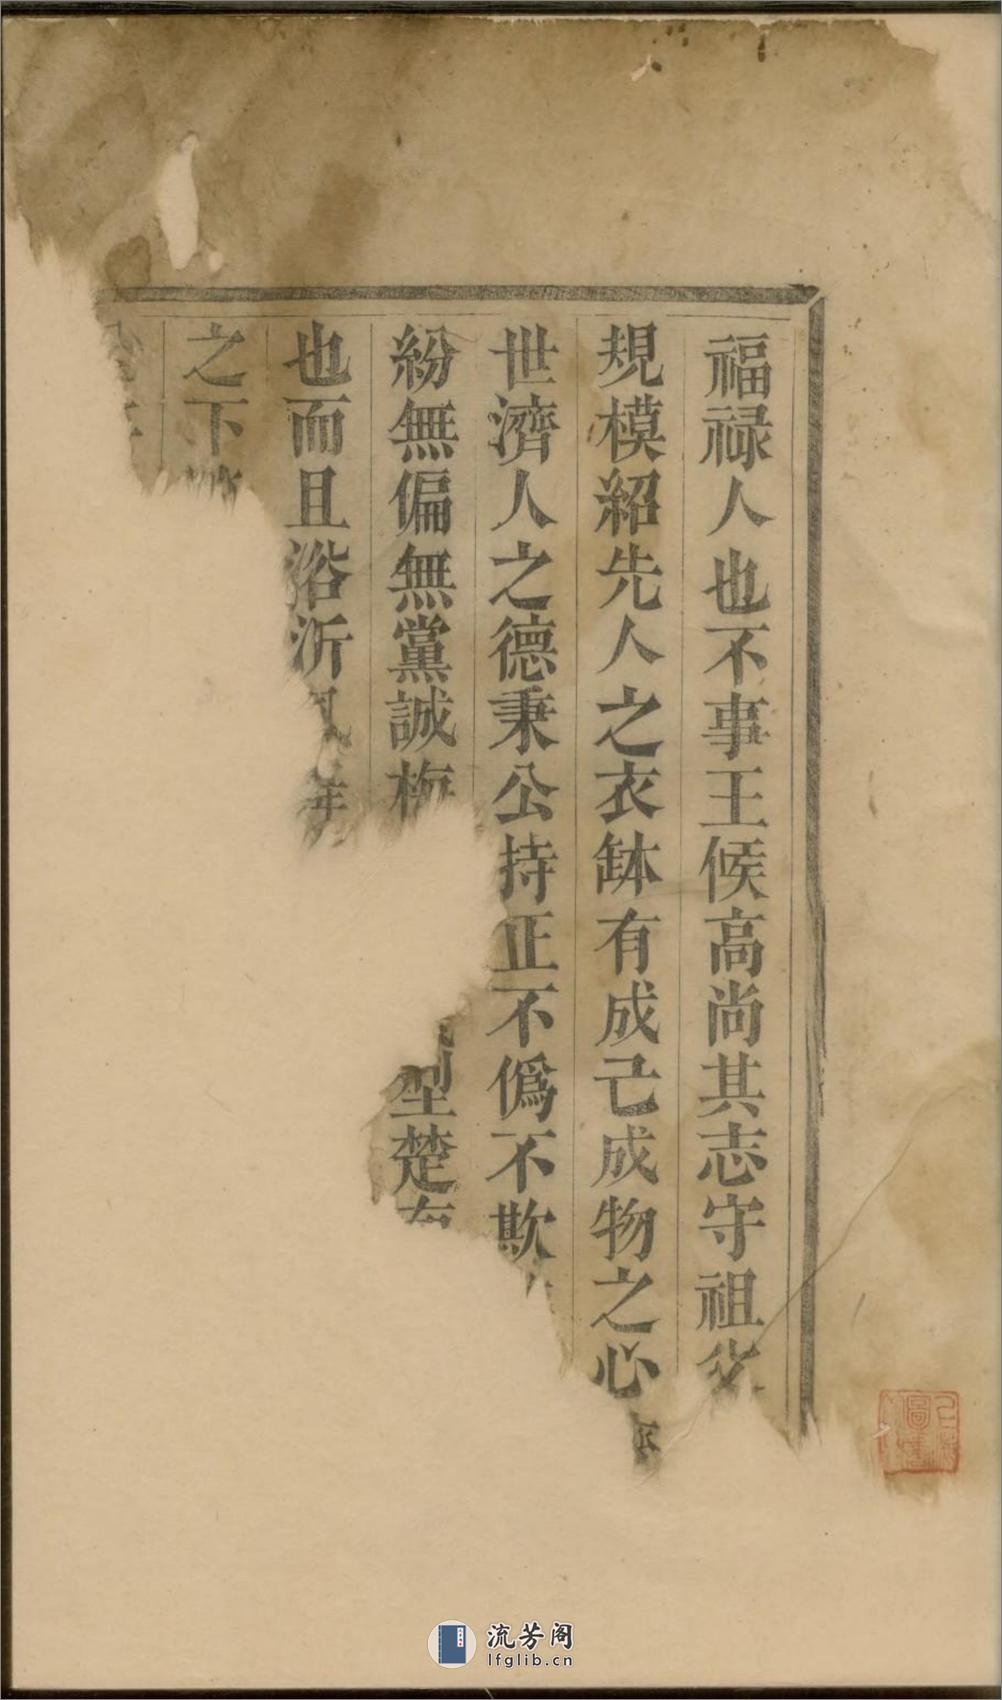 福禄人也不事王候高尚其志守祖父
規模紹先人之衣缽有成己成物之心
世濟人之德秉公持正不僞不欺
紛無偏無黨誠梅
堂楚
也而且浴沂風
之下
流芳阁
lfglib.cn